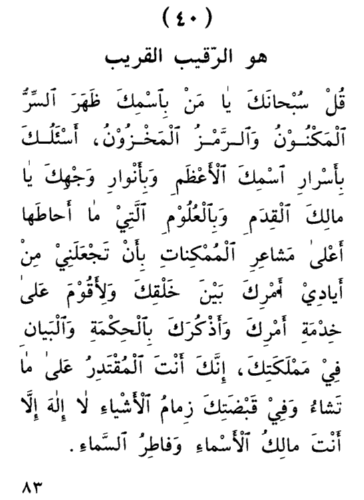 (٤٠)
هو الرّقيب القريب
قُلْ سُبْحانَكَ يا مَنْ بِٱسْمِكَ ظَهَرَ ٱلسِّرُّ
ٱلْمَكْنُـونُ وَٱلـرَّمْـزُ ٱلْمَخْـزُوْنُ، أَسْئَلُـكَ
بِأَسْرارِ ٱسْمِكَ ٱلْأَعْظَمِ وَبِأَنْوارِ وَجْهِكَ يا
مالِكَ ٱلْقِدَمِ وَبِٱلْعُلُوْمِ ٱلَّتِيْ ما أَحاطَها
أَعْلىٰ مَشاعِرِ ٱلْمُمْكِناتِ بِأَنْ تَجْعَلَنِيْ مِنْ
أَيادِيْ أَمْرِكَ بَيْنَ خَلْقِكَ وَلِأَقُوْمَ عَلىٰ
خِدْمَةِ أَمْرِكَ وَأَذْكُرَكَ بِٱلْحِكْمَةِ وَٱلْبَيانِ
فِيْ مَمْلَكَتِكَ، إِنَّكَ أَنْتَ ٱلْمُقْتَدِرُ عَلىٰ ما
تَشاءُ وَفِيْ قَبْضَتِكَ زِمامُ ٱلْأَشْياءِ لا إِلٰهَ إِلَّا
أَنْتَ مالِكُ ٱلْأَسْماءِ وَفاطِرُ ٱلسَّماءِ.
٨٣